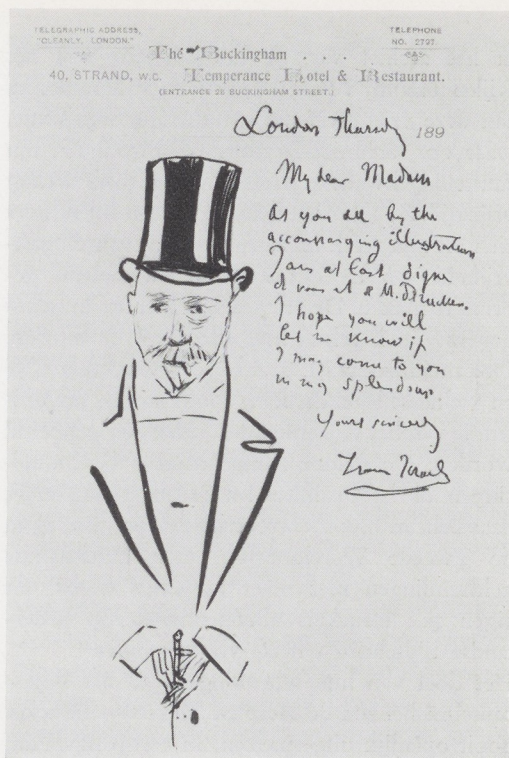 TELEGRAPHIC ADDRESS,
"CLEANLY, LONDON."
TELEPHONE
NO. 2797.
The Buckingham . . . .
40, STRAND, W.C. Temperance Hotel & Restaurant.
(ENTRANCE 28 BUCKINGHAM STREET.)
London Thursdy 189
My dear Madam
As you all by the
accompanying illustration
I am at last digne
de vous et de M. Drucker.
I hope you will
let me know if
I may come to you
in my splendour.
Yours sincerely